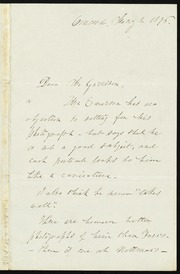 Concord, May 6 1875.
Dear Mr Garrison,
Mr Emerson has no
objection to sitting for his
photograph - but says that he
is not a good subject, and
each portrait looks to him
like a caricature.
I also think he never "takes
well"
There are however better
photographs of him than
Have it not at